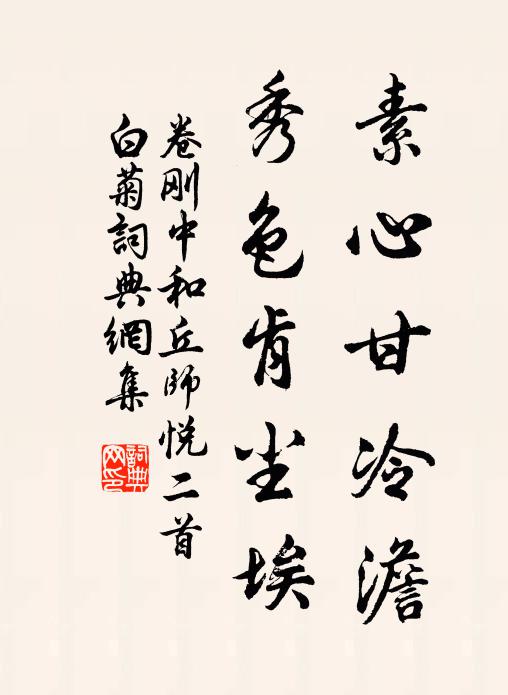 素心甘冷澹
秀色肯尘埃
卷刚中和丘师悦二首
白菊詞典網集
詞典
网印